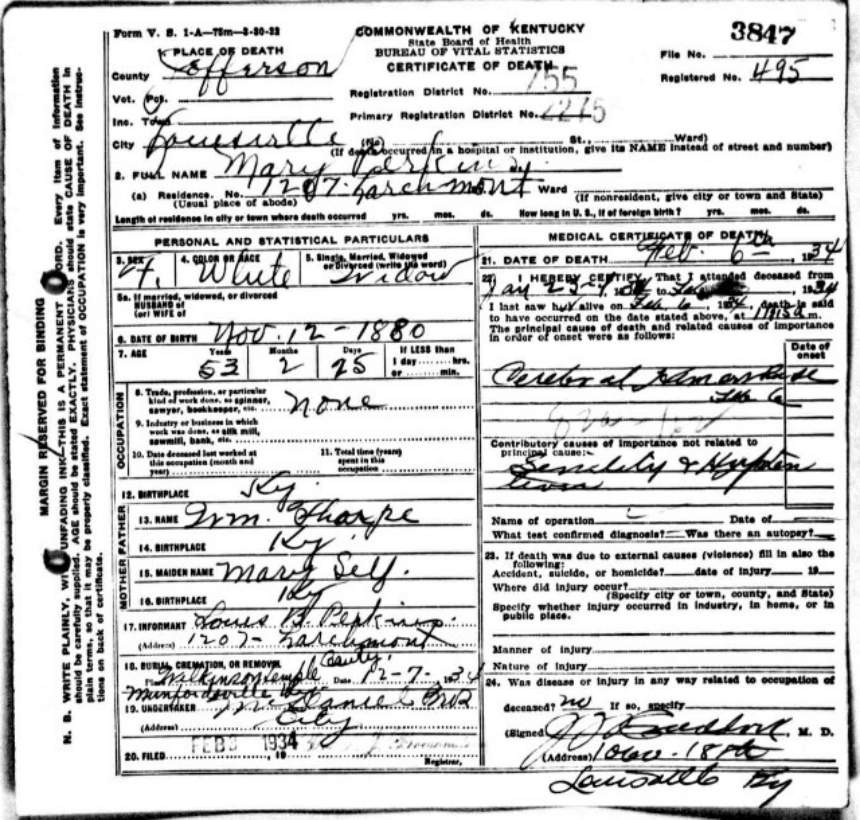 Form V. S. 1-A—75m—8-30-32
COMMONWEALTH OF KENTUCKY
State Board of Health
BUREAU OF VITAL STATISTICS
CERTIFICATE OF DEATH
3847
File No.
Registered No. 495
1. PLACE OF DEATH
County Jefferson
Registration District No. 755
Vot. Pct.
Primary Registration District No.
Inc. Town
City Louisville (No. St., Ward)
(If death occurred in a hospital or institution, give its NAME instead of street and number)
2. FULL NAME Mary Perkins.
(a) Residence. No. 1207 Larchmont Ward
(Usual place of abode) (If nonresident, give city or town and State)
Length of residence in city or town where death occurred yrs. mos. ds. How long in U. S., if of foreign birth? yrs. mos. ds.
PERSONAL AND STATISTICAL PARTICULARS
3. SEX F. 4. COLOR OR RACE White 5. Single, Married, Widowed or Divorced (write the word) Widow
5a. If married, widowed, or divorced
HUSBAND of
(or) WIFE of
6. DATE OF BIRTH Nov. 12 - 1880
7. AGE Years 53 Months 2 Days 25 If LESS than 1 day........hrs. or........min.
OCCUPATION
8. Trade, profession, or particular kind of work done, as spinner, sawyer, bookkeeper, etc. none
9. Industry or business in which work was done, as silk mill, sawmill, bank, etc.
10. Date deceased last worked at this occupation (month and year)
11. Total time (years) spent in this occupation
12. BIRTHPLACE Ky.
FATHER
13. NAME Wm. Tharpe
14. BIRTHPLACE Ky
MOTHER
15. MAIDEN NAME Mary Self.
16. BIRTHPLACE Ky
17. INFORMANT Louis B. Perkins.
(Address) 1207- Larchmont
18. BURIAL, CREMATION, OR REMOVAL
Place Wilkinson Temple Date 12-7-, 1934
Munfordsville Ky.
19. UNDERTAKER McDaniel Bros
(Address) City
20. FILED FEB 1934, 19
Registrar.
MEDICAL CERTIFICATE OF DEATH
21. DATE OF DEATH Feb. 6th, 1934
22. I HEREBY CERTIFY, That I attended deceased from
Jan 23, 1934 to Feb, 1934
I last saw her alive on Feb 6, 1934, death is said
to have occurred on the date stated above, at m.
The principal cause of death and related causes of importance
in order of onset were as follows:
Date of onset
Cerebral Hemorrhage
Feb 6
Contributory causes of importance not related to
principal cause:
Senility & Hypertension
Name of operation Date of
What test confirmed diagnosis? Was there an autopsy?
23. If death was due to external causes (violence) fill in also the
following:
Accident, suicide, or homicide? date of injury 19
Where did injury occur?
(Specify city or town, county, and State)
Specify whether injury occurred in industry, in home, or in
public place.
Manner of injury
Nature of injury
24. Was disease or injury in any way related to occupation of
deceased? no If so, specify
(Signed) M. D.
(Address)
Louisville Ky
MARGIN RESERVED FOR BINDING
N. B. WRITE PLAINLY, WITH UNFADING INK—THIS IS A PERMANENT RECORD. Every item of information
should be carefully supplied. AGE should be stated EXACTLY. PHYSICIANS should state CAUSE OF DEATH in
plain terms, so that it may be properly classified. Exact statement of OCCUPATION is very important. See instruc-
tions on back of certificate.